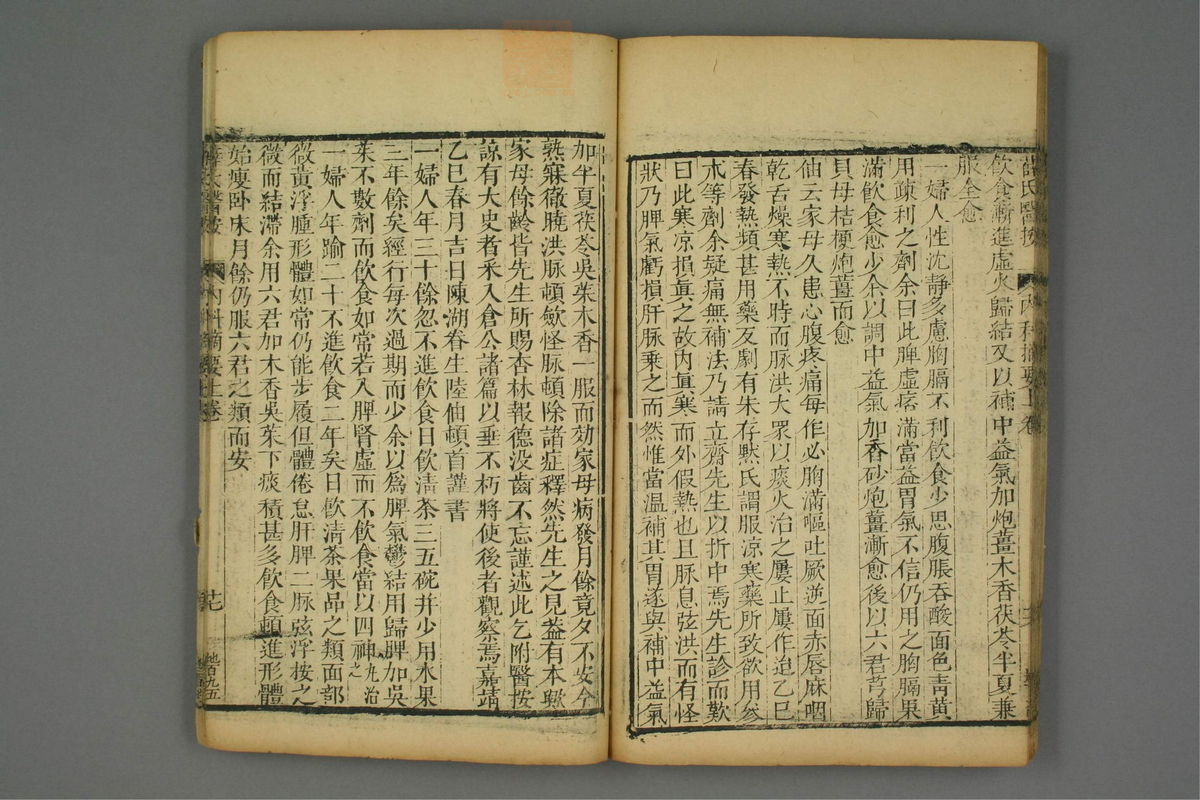 薛氏醫按 內科摘要上卷
飲食漸進虛火歸結又以補中益氣加炮薑木香茯苓半夏兼
服全愈
一婦人性沈靜多慮胸膈不利飲食少思腹脹吞酸面色青黃
用疎利之劑余曰此脾虛痞滿當益胃氣不信仍用之胸膈果
滿飲食愈少余以調中益氣加香砂炮薑漸愈後以六君芎歸
貝母桔梗炮薑而愈
伷云家母久患心腹疼痛每作必胸滿嘔吐厥逆面赤唇麻咽
乾舌燥寒熱不時而脉洪大眾以痰火治之屢止屢作迨乙巳
春發熱頻甚用藥反劇有朱存默氏謂服凉寒藥所致欲用參
朮等劑余疑痛無補法乃請立齋先生以折中焉先生診而歎
曰此寒凉損眞之故內眞寒而外假熱也且脉息弦洪而有怪
狀乃脾氣虧損肝脉乘之而然惟當温補其胃遂與補中益氣
加半夏茯苓吳茱木香一服而効家母病發月餘竟夕不安今
熟寐徹曉洪脉頓歛怪脉頓除諸症釋然先生之見葢有本歟
家母餘齡皆先生所賜杏林報德没齒不忘謹述此乞附醫按
諒有大史者釆入倉公諸篇以垂不朽將使後者觀察焉嘉靖
乙巳春月吉日陳湖眷生陸伷頓首謹書
一婦人年三十餘忽不進飲食日飲清茶三五碗并少用水果
三年餘矣經行每次過期而少余以爲脾氣鬱結用歸脾加吳
茱不數劑而飲食如常若人脾腎虛而不飲食當以四神丸治之
一婦人年踰二十不進飲食二年矣日飲清茶果品之類面部
微黃浮腫形體如常仍能步履但體倦怠肝脾二脉弦浮按之
微而結滯余用六君加木香吳茱下痰積甚多飲食頓進形體
始瘦卧床月餘仍服六君之類而安
薛氏醫按 內科摘要上卷 地百九五